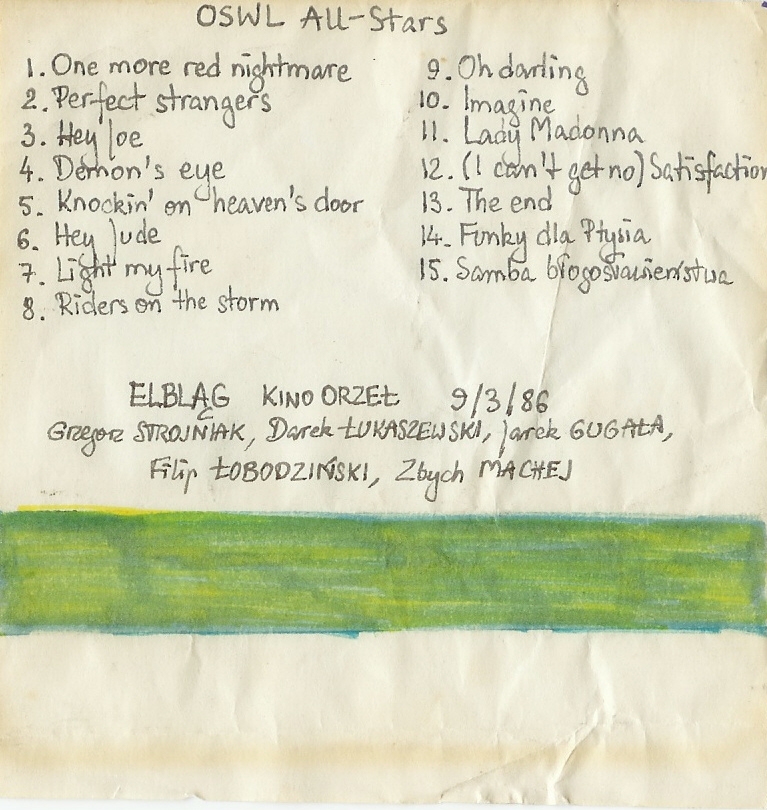 OSWL All-Stars
1. One more red nightmare
2. Perfect strangers
3. Hey Joe
4. Demon's eye
5. Knockin' on heaven's door
6. Hey Jude
7. Light my fire
8. Riders on the storm
9. Oh darling
10. Imagine
11. Lady Madonna
12. (I can't get no) Satisfaction
13. The end
14. Funky dla Ptysia
15. Samba błogosławieństwa
ELBLĄG KINO ORZEŁ 9/3/86
Grzegorz STROJNIAK, Darek ŁUKASZEWSKI, Jarek GUGAŁA,
Filip ŁOBODZIŃSKI, Zbych MACHEJ